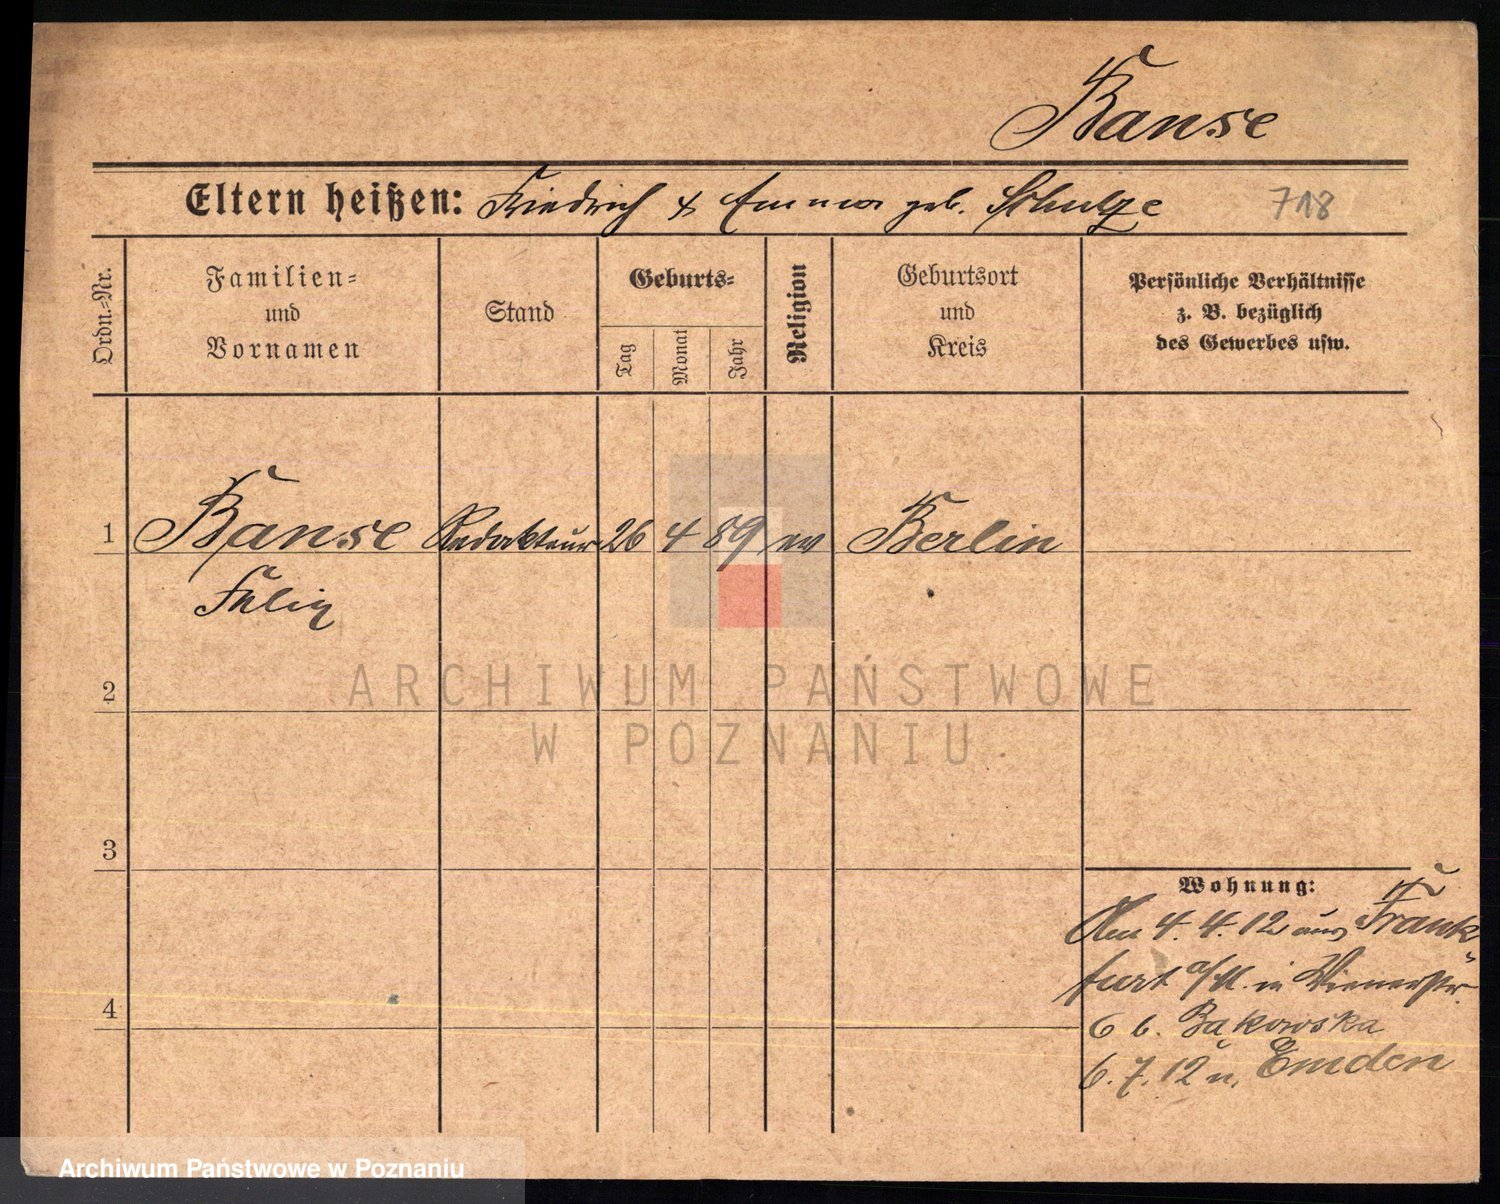 Banse
Eltern heißen: Friedrich & Emma geb. Schulze 718
Ordn.-Nr.
Familien-
und
Vornamen
Stand
Geburts-
Tag
Monat
Jahr
Religion
Geburtsort
und
Kreis
Persönliche Verhältnisse
z. B. bezüglich
des Gewerbes usw.
1 Banse Redakteur 26 4 89 ev Berlin
2
3
4
Wohnung:
Am 4. 4. 12 aus Frank
furt a/M. in Wienerstr.
6 b. Bąkowska
6. 7. 12 n. Emden
ARCHIWUM PAŃSTWOWE
W POZNANIU
Archiwum Państwowe w Poznaniu